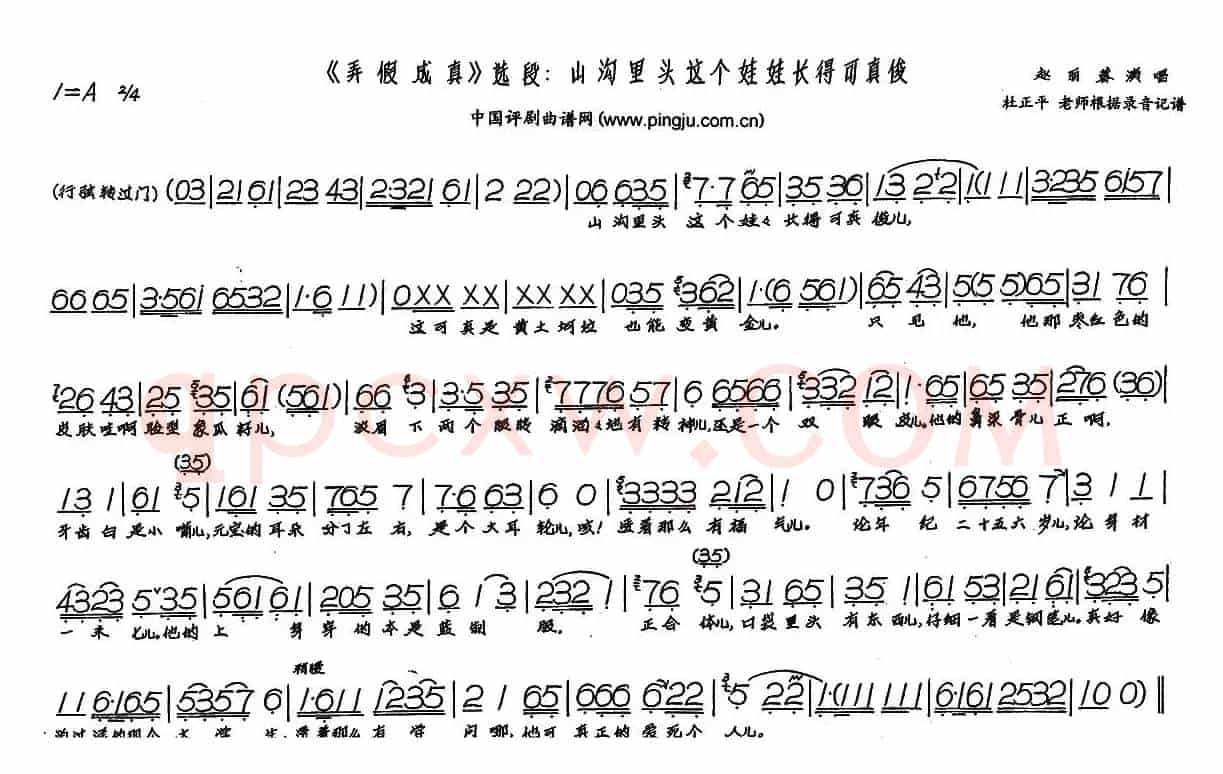 《弄假成真》选段：山沟里头这个娃娃长得可真俊
1=A 2/4
赵丽蓉演唱
中国评剧曲谱网(www.pingju.com.cn)
杜正平 老师根据录音记谱
(行弦转过门) (03|21 61|23 43|2·321 61|2 22)|06 635|7·7 65|35 36|13 2 2|1(1 11|3·235 6157|
山沟里头 这个娃々长得可真俊儿,
66 65|3·561 6532|1·6 11)|0XX XX|XX XX|035 362|1·(6 561)|65 43|5(5 5)65|31 76|
这可真是黄土坷垃 也能变黄金儿。 只见他, 他那枣红色的
26 43|25 35|61 (561)|66 3|3·5 35|7776 57|6 6566|332 12|1·65|65 35|276 (36)|
皮肤哇啊脸型象瓜籽儿, 浓眉下两个眼睛滴溜々地有精神儿,还是一个双眼皮儿。他的鼻梁骨儿正啊,
(35)
13 1|61 5|161 35|765 7|7·6 63|6 0|3333 212|1 0|736 5|6756 7|3 1 1|
牙齿白是小嘴儿,元宝的耳朵分了左右,是个大耳轮儿,咳!显着那么有福气儿。论年纪二十五六岁儿,论身材
(35)
4323 5 35|561 61|205 35|6 13|232 1|76 5|31 65|35 1|61 53|21 61|323 5|
一米七儿。他的上身穿的本是蓝制服。正合体儿,口袋里头有东西儿,仔细一看是钢笔儿。真好像
稍慢
11 6·165|5357 6|1·611 1235|2 1 65|666 622|5 22|1·(111 111|6·161 2532|1 00)‖
大学生,显着那么有学问哪,他可真正的爱死个人儿。
qpcxw.com